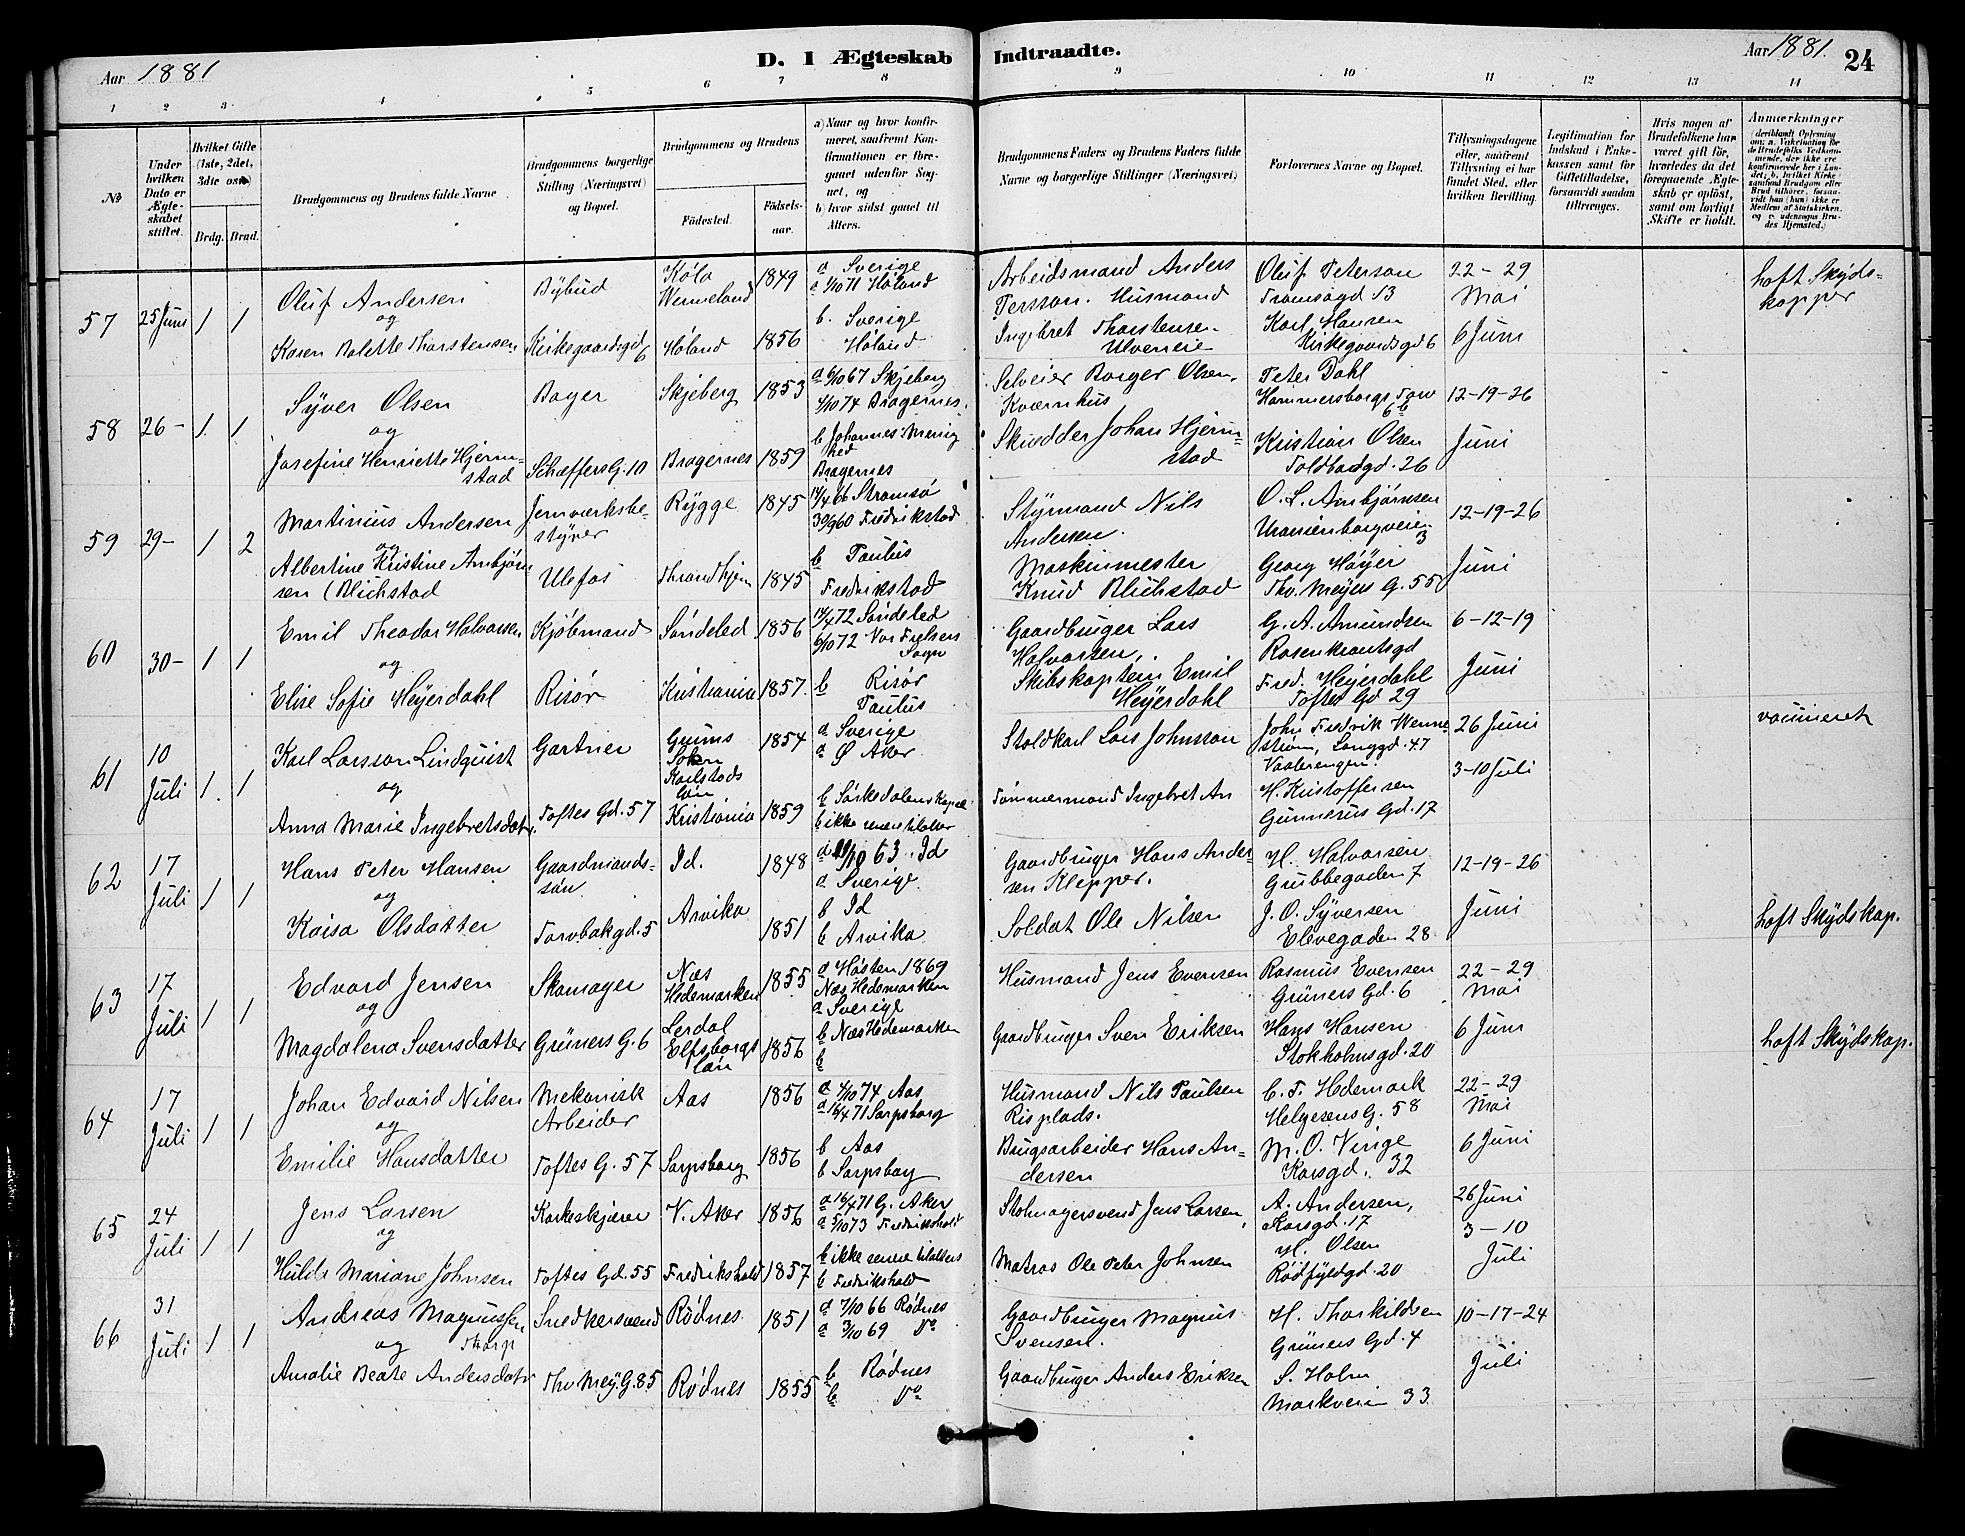 Aar 1881
D. 1 Ægteskab Indtraadte.
Aar 1881.
24
1 2 3 4 5 6 7 8 9 10 11 12 13 14
No
Under hvilken Dato er Ægteskabet stiftet.
Hvilket Gifte (1ste, 2det, 3die osv.)
Brdg. Brud.
Brudgommens og Brudens fulde Navne
Brudgommens borgerlige Stilling (Næringsvei) og Bopæl.
Brudgommens og Brudens
Fødested. Fødsels-aar.
a) Naar og hvor konfirmeret, saafremt Konfirmationen er foregaaet udenfor Sognet, og
b) hvor sidst gaaet til Alters.
Brudgommens Faders og Brudens Faders fulde Navne og borgerlige Stillinger (Næringsvei)
Forlovernes Navne og Bopæl.
Tillysningsdagene eller, saafremt Tillysning ei har fundet Sted, efter hvilken Bevilling.
Legitimation for Indskud i Enkekassen samt for Giftetilladelse, forsaavidt saadan tiltrænges.
Hvis nogen af Brudefolkene har været gift før, hvorledes da det foregaaende Ægteskab er opløst, samt om lovligt Skifte er holdt.
Anmærkninger
57 25 Juni 1 1
Oluf Andersen
og
Karen Bolette Thorstensen
Bybud
Kirkegaardsgd 6
Köla Wermeland 1849
Høland 1856
a Sverige
a 1/10 71 Høland
b. Sverige
Høland
Arbeidsmand Anders Persson. Husmand
Ingebret Thorstensen Ulverneie
Oluf Peterson
Tromsøgd 13
Karl Hansen
Kirkegaardsgd 6
22-29 Mai
6 Juni
haft Skyds-
kopper
58 26- 1. 1
Syver Olsen
og
Josefine Henriette Hjerm-
stad
Bager
Schæffers G. 10
Skjeberg 1853
Bragernes 1859
a 6/10 67 Skjeberg
4/10 74 Bragernes.
b Johannes Menig
hed
Bragernes
Selveier Borger Olsen,
Kværnhus
Skrædder Johan Hjerm-
stad
Peter Dahl
Hammersborgs Torv
6b
Kristian Olsen
Toldbodgd. 26
12-19-26
Juni
59 29- 1 2
Martinius Andersen
og
Albertine Kristine Ambjørn
sen (Blichstad
Jernværksbe-
styrer
Ulefos
Rygge 1845
Throndhjem 1845
14/4 66 Strømsø
30/9 60 Fredrikstad
b Paulus
Fredrikstad
Styrmand Nils
Andersen.
Maskinmester
Knud Blichstad
O. L. Ambjørnsen
Uranienborgveien
3
Georg Høyer
Thv. Meyers G. 55
12-19-26
Juni
60 30- 1 1
Emil Theodor Halvorsen
og
Elise Sofie Heyerdahl
Kjøbmand
Risør
Søndeled 1856
Kristiania 1857.
14/4 72 Søndeled
6/10 72 Vor Frelsers
Sogn
b Risør
Paulus
Gaardbruger Lars
Halvorsen,
Skibskaptein Emil
Heyerdahl
G. A. Amundsen
Rosenkrantsgd
Fred. Heyerdahl
Toftes Gd 29
6-12-19
Juni
61 10 Juli 1. 1
Karl Larsson Lindquist
og
Anna Marie Ingebretsdatr.
Gartner
Toftes Gd. 57
Grums Soken Karlstads län 1854
Kristiania 1859
a Sverige
a Ø Aker
b Sørkedalens Kapel
b ikke senere tilalter
Staldkarl Lars Johnsson
Tømmermand Ingebret An
John Fredrik Wenne-
strøm, Langgd. 47
Vaalerengen.
H. Kristoffersen
Gunnerus Gd. 17
26 Juni
3-10 Juli
vaccineret
62 17 Juli 1 1
Hans Peter Hansen
og
Kaisa Olsdatter
Gaardmands-
søn
Torvbakgd. 5
Id. 1848
Arvika 1851
a 11/10 63. Id
a Sverige.
b Id
b Arvika
Gaardbruger Hans Ander-
sen Klepper.
Soldat Ole Nilsen
H. Halvorsen
Grubbegaden 7
J. O. Syversen
Elvegaden 28
12-19-26
Juni
haft Skydskop.
63 17 Juli 1 1
Edvard Jensen
og
Magdalena Svensdatter
Skomager
Grüners G. 6
Næs Hedemarken 1855
Lerdal Elfsborgs län 1856
a Høsten 1869
Næs Hedemarken
a Sverige
b Næs Hedemarken
b
Husmand Jens Evensen
Gaardbruger Sven Eriksen
Rasmus Evensen
Grüners Gd. 6
Hans Hansen
Stokholmsgd. 20
22-29 Mai
6 Juni
haft Skydskop.
64 17 Juli 1 1
Johan Edvard Nilsen
og
Emilie Hansdatter
Mekanisk
Arbeider
Toftes G. 57
Aas 1856
Sarpsborg 1856
a 4/10 74 Aas
a 16/4 71 Sarpsborg
b Aas
b Sarpsborg
Husmand Nils Paulsen
Risplads.
Brugsarbeider Hans An-
dersen
C. F. Hedemark
Helgesens G. 58
M. O. Vinge
Korsgd. 32
22-29 Mai
6 Juni
65 24 Juli 1 1
Jens Larsen
og
Hulda Mariane Johnsen
Korkeskjærer
Toftes Gd. 55
V. Aker 1856
Fredrikshald 1857
a 16/4 71 G. Aker
a 5/10 73 Fredrikshald
b ikke senere tilalters
b Fredrikshald
Stolmagersvend Jens Larsen,
Matros Ole Peter Johnsen
A. Andersen,
Korsgd. 17
H. Olsen
Rødfyldgd. 20
26 Juni
3-10
Juli
66 31 Juli 1 1
Andreas Magnussen
og Thorp
Amalie Beate Andersdatr
Snedkersvend
Thv Mey. G. 85
Rødnes 1851
Rødnes 1855
a 7/10 66 Rødnes
a 3/10 69 Do
b Rødnes
b Do
Gaardbruger Magnus
Svensen.
Gaardbruger Anders Eriksen
H. Thorkildsen
Grüners Gd. 4
S. Holm
Markveien 33
10-17-24
Juli